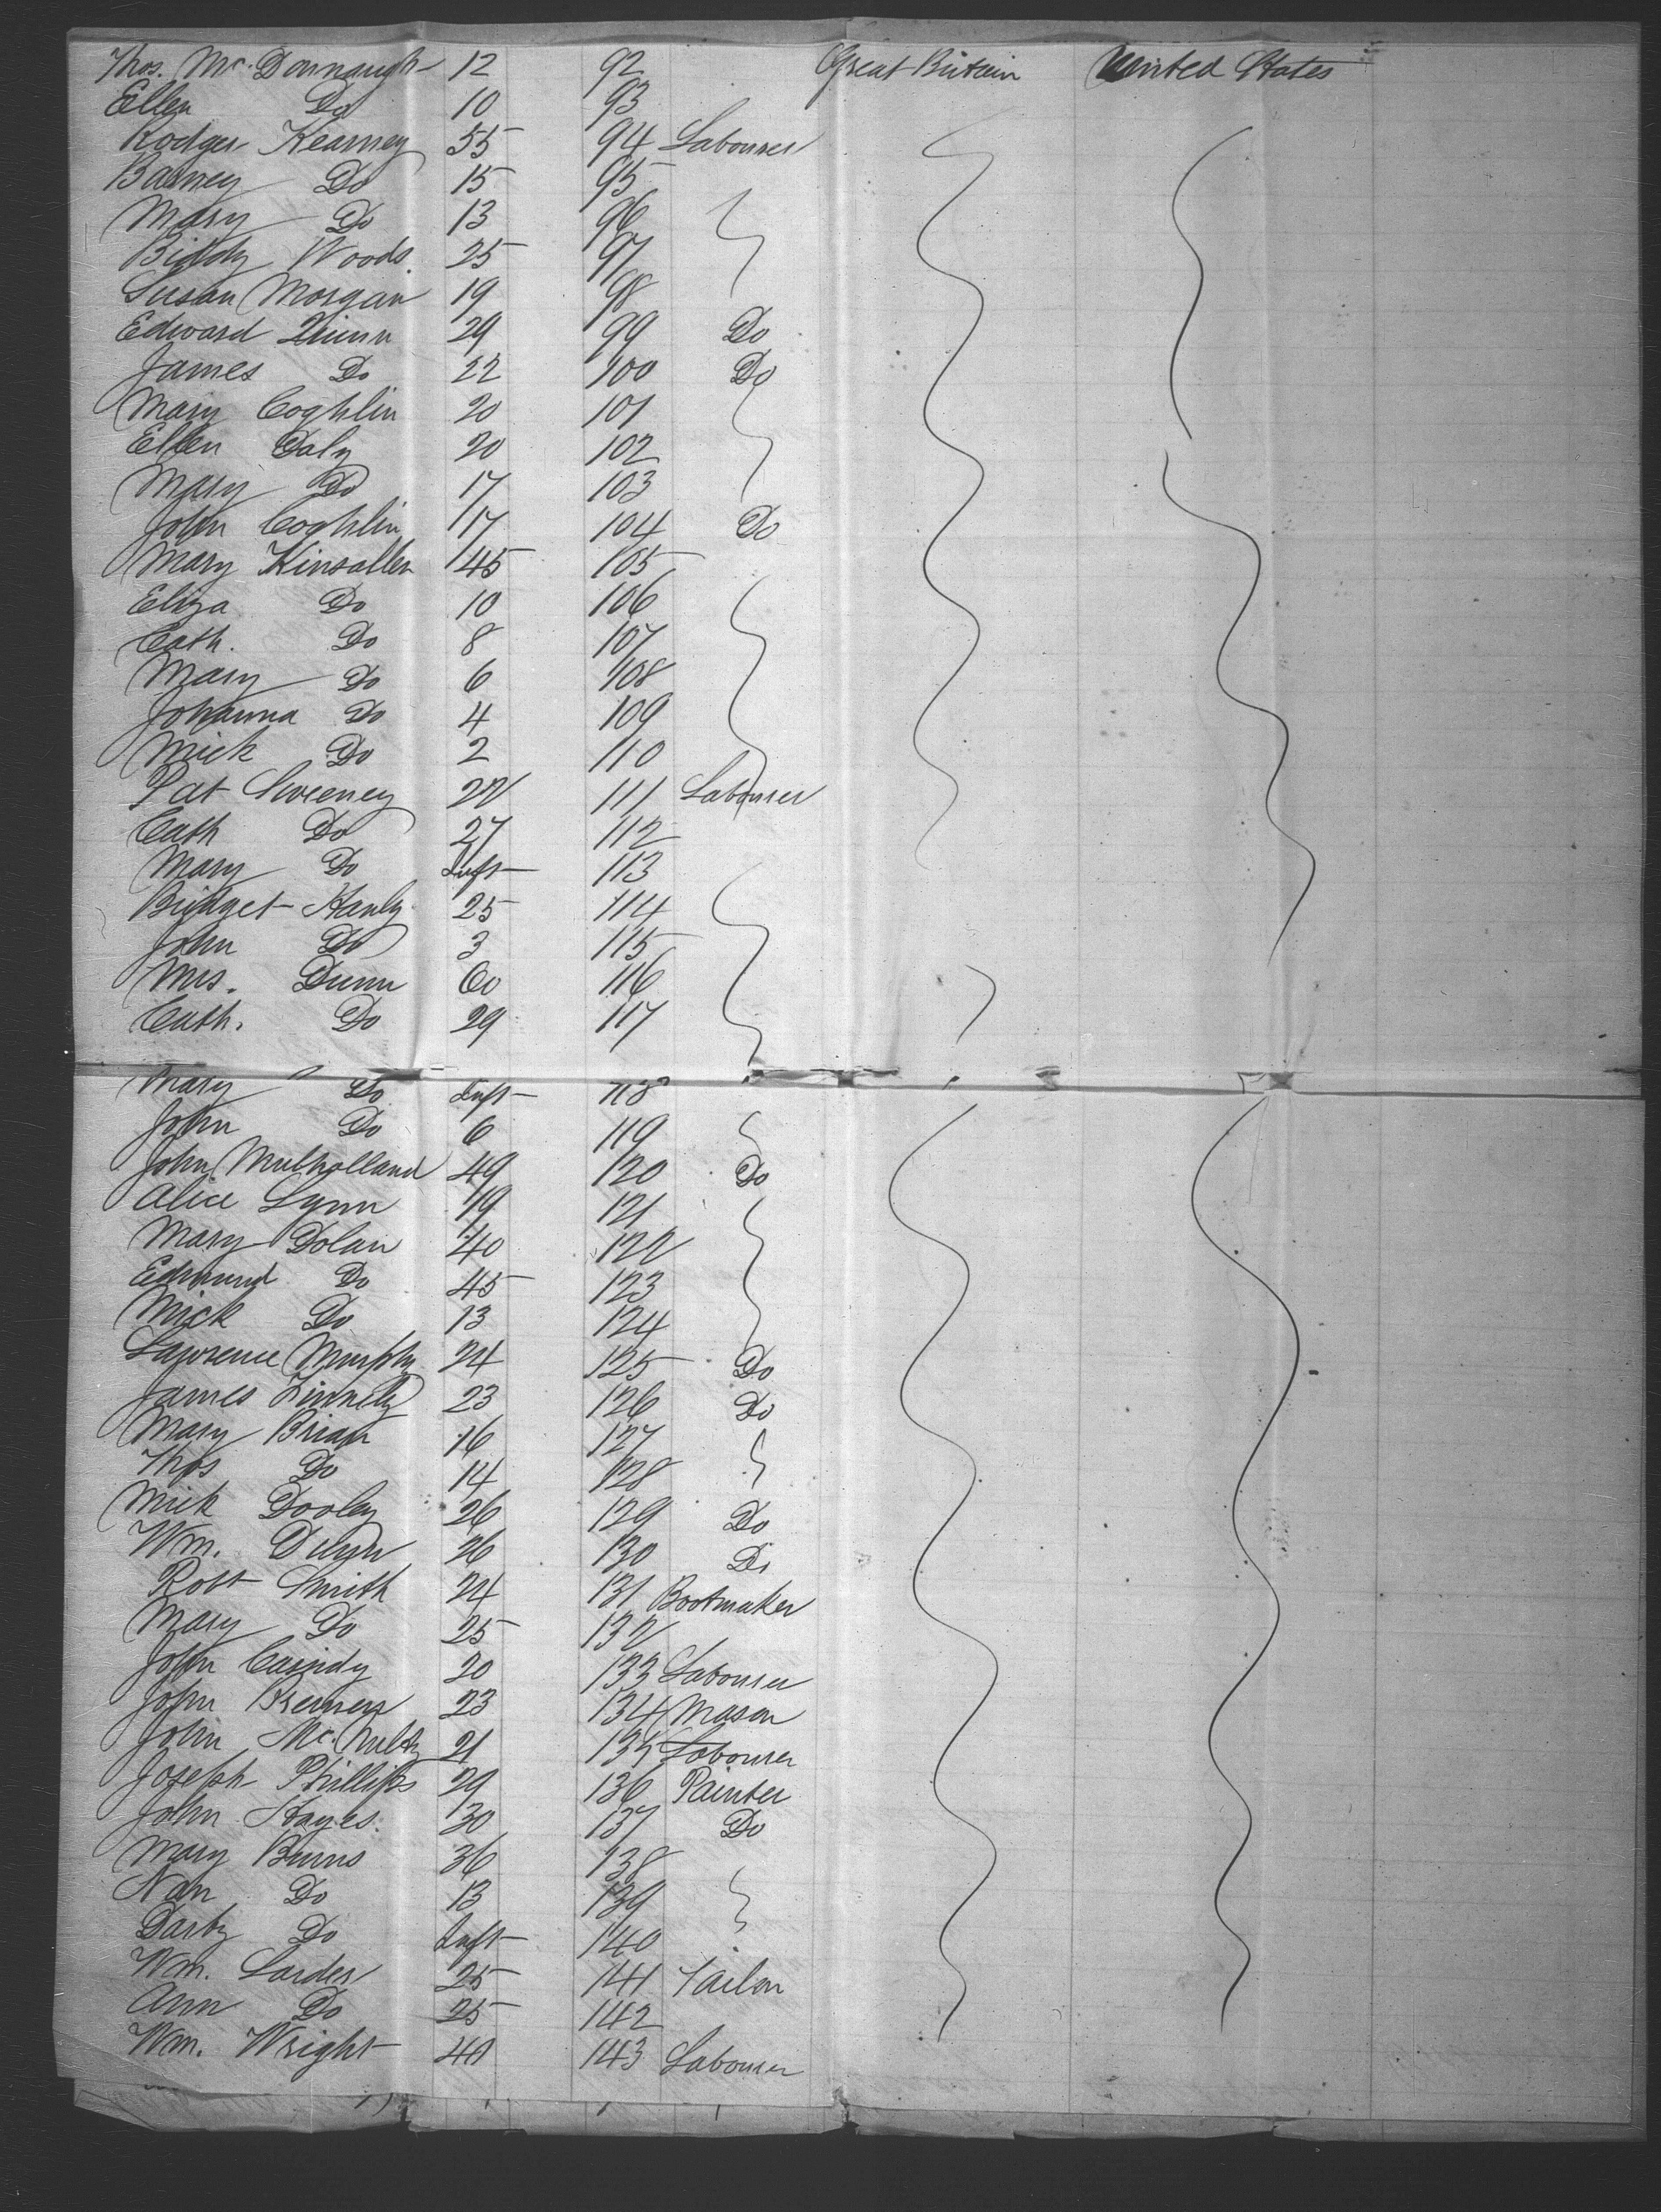 Thos. Mc. Donnaugh 12 92 Great Britain United States
Ellen Do 10 93
Rodger Kearney 55 94 Labourer
Barney Do 15 95
Mary Do 13 96
Biddy Woods. 25 97
Susan Morgan 19 98
Edward Quinn 29 99 Do
James Do 22 100 Do
Mary Coghlin 20 101
Ellen Daly 20 102
Mary Do 17 103
John Coghlin 17 104 Do
Mary Kinsallen 45 105
Eliza Do 10 106
Cath. Do 8 107
Mary Do 6 108
Johanna Do 4 109
Mick Do 2 110
Pat Sweeney 22 111 Labourer
Cath Do 27 112
Mary Do Inft 113
Bridget Hanly 25 114
John Do 3 115
Mrs. Dunn 60 116
Cath. Do 29 117
Mary Do Inft 118
John Do 6 119
John Mulholland 49 120 Do
Alice Lynn 19 121
Mary Dolan 40 122
Edmund Do 45 123
Mick Do 13 124
Lawrence Murphy 24 125 Do
James 23 126 Do
Mary Brian 16 127
Thos Do 14 128
Mick Dooley 26 129 Do
Wm. 26 130 Do
Robt Smith 24 131 Bootmaker
Mary Do 25 132
John Cassidy 20 133 Labourer
John 23 134 Mason
John Mc. Nulty 21 135 Labourer
Joseph Phillips 29 136 Painter
John Hayes. 30 137 Do
Mary Burns 36 138
Nan Do 13 139
Darby Do Inft 140
Wm. Larder 25 141 Tailor
Ann Do 25 142
Wm. Wright 40 143 Labourer